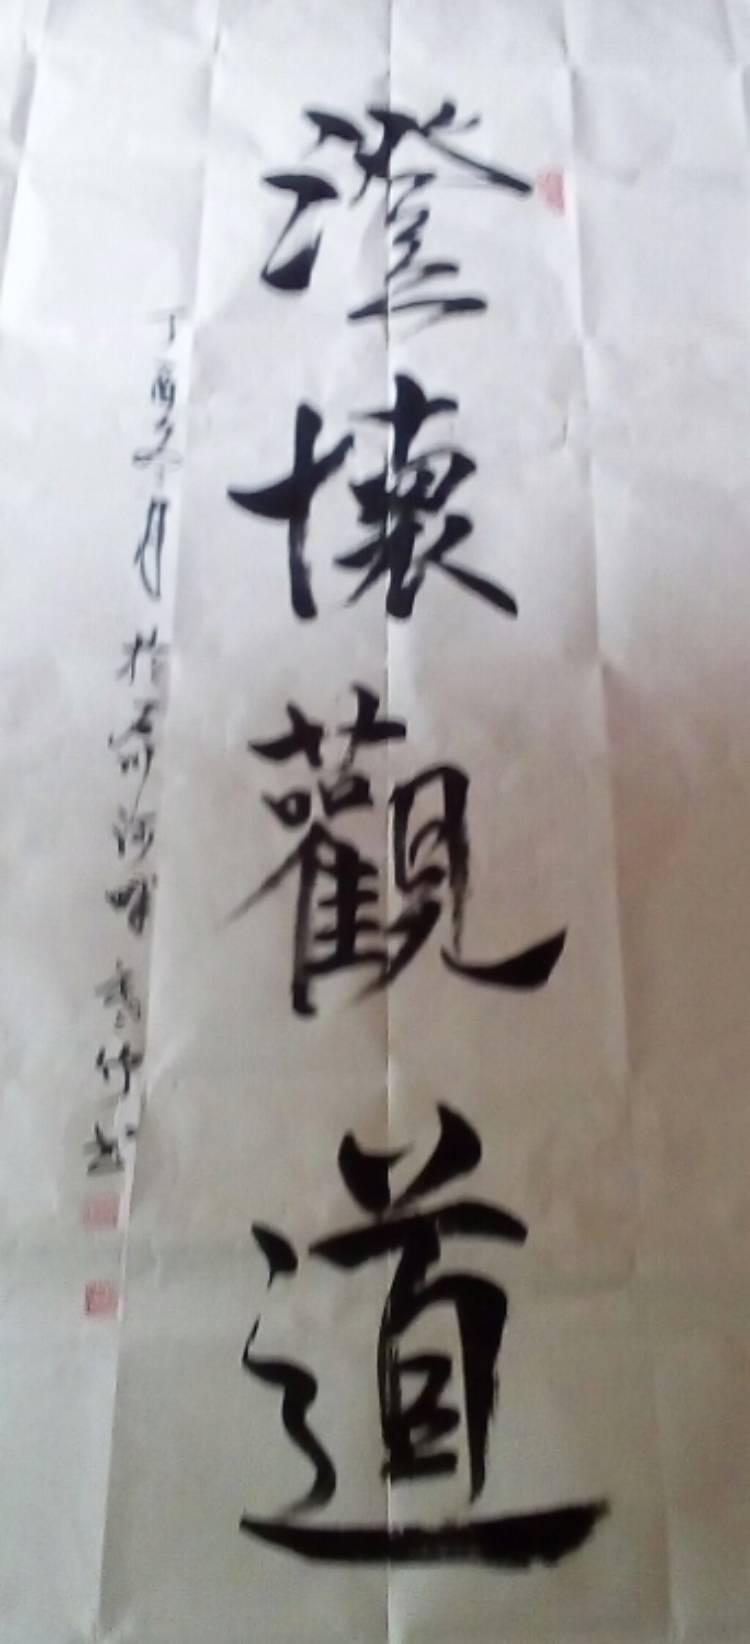 澄懷觀道
丁酉冬月於河畔書